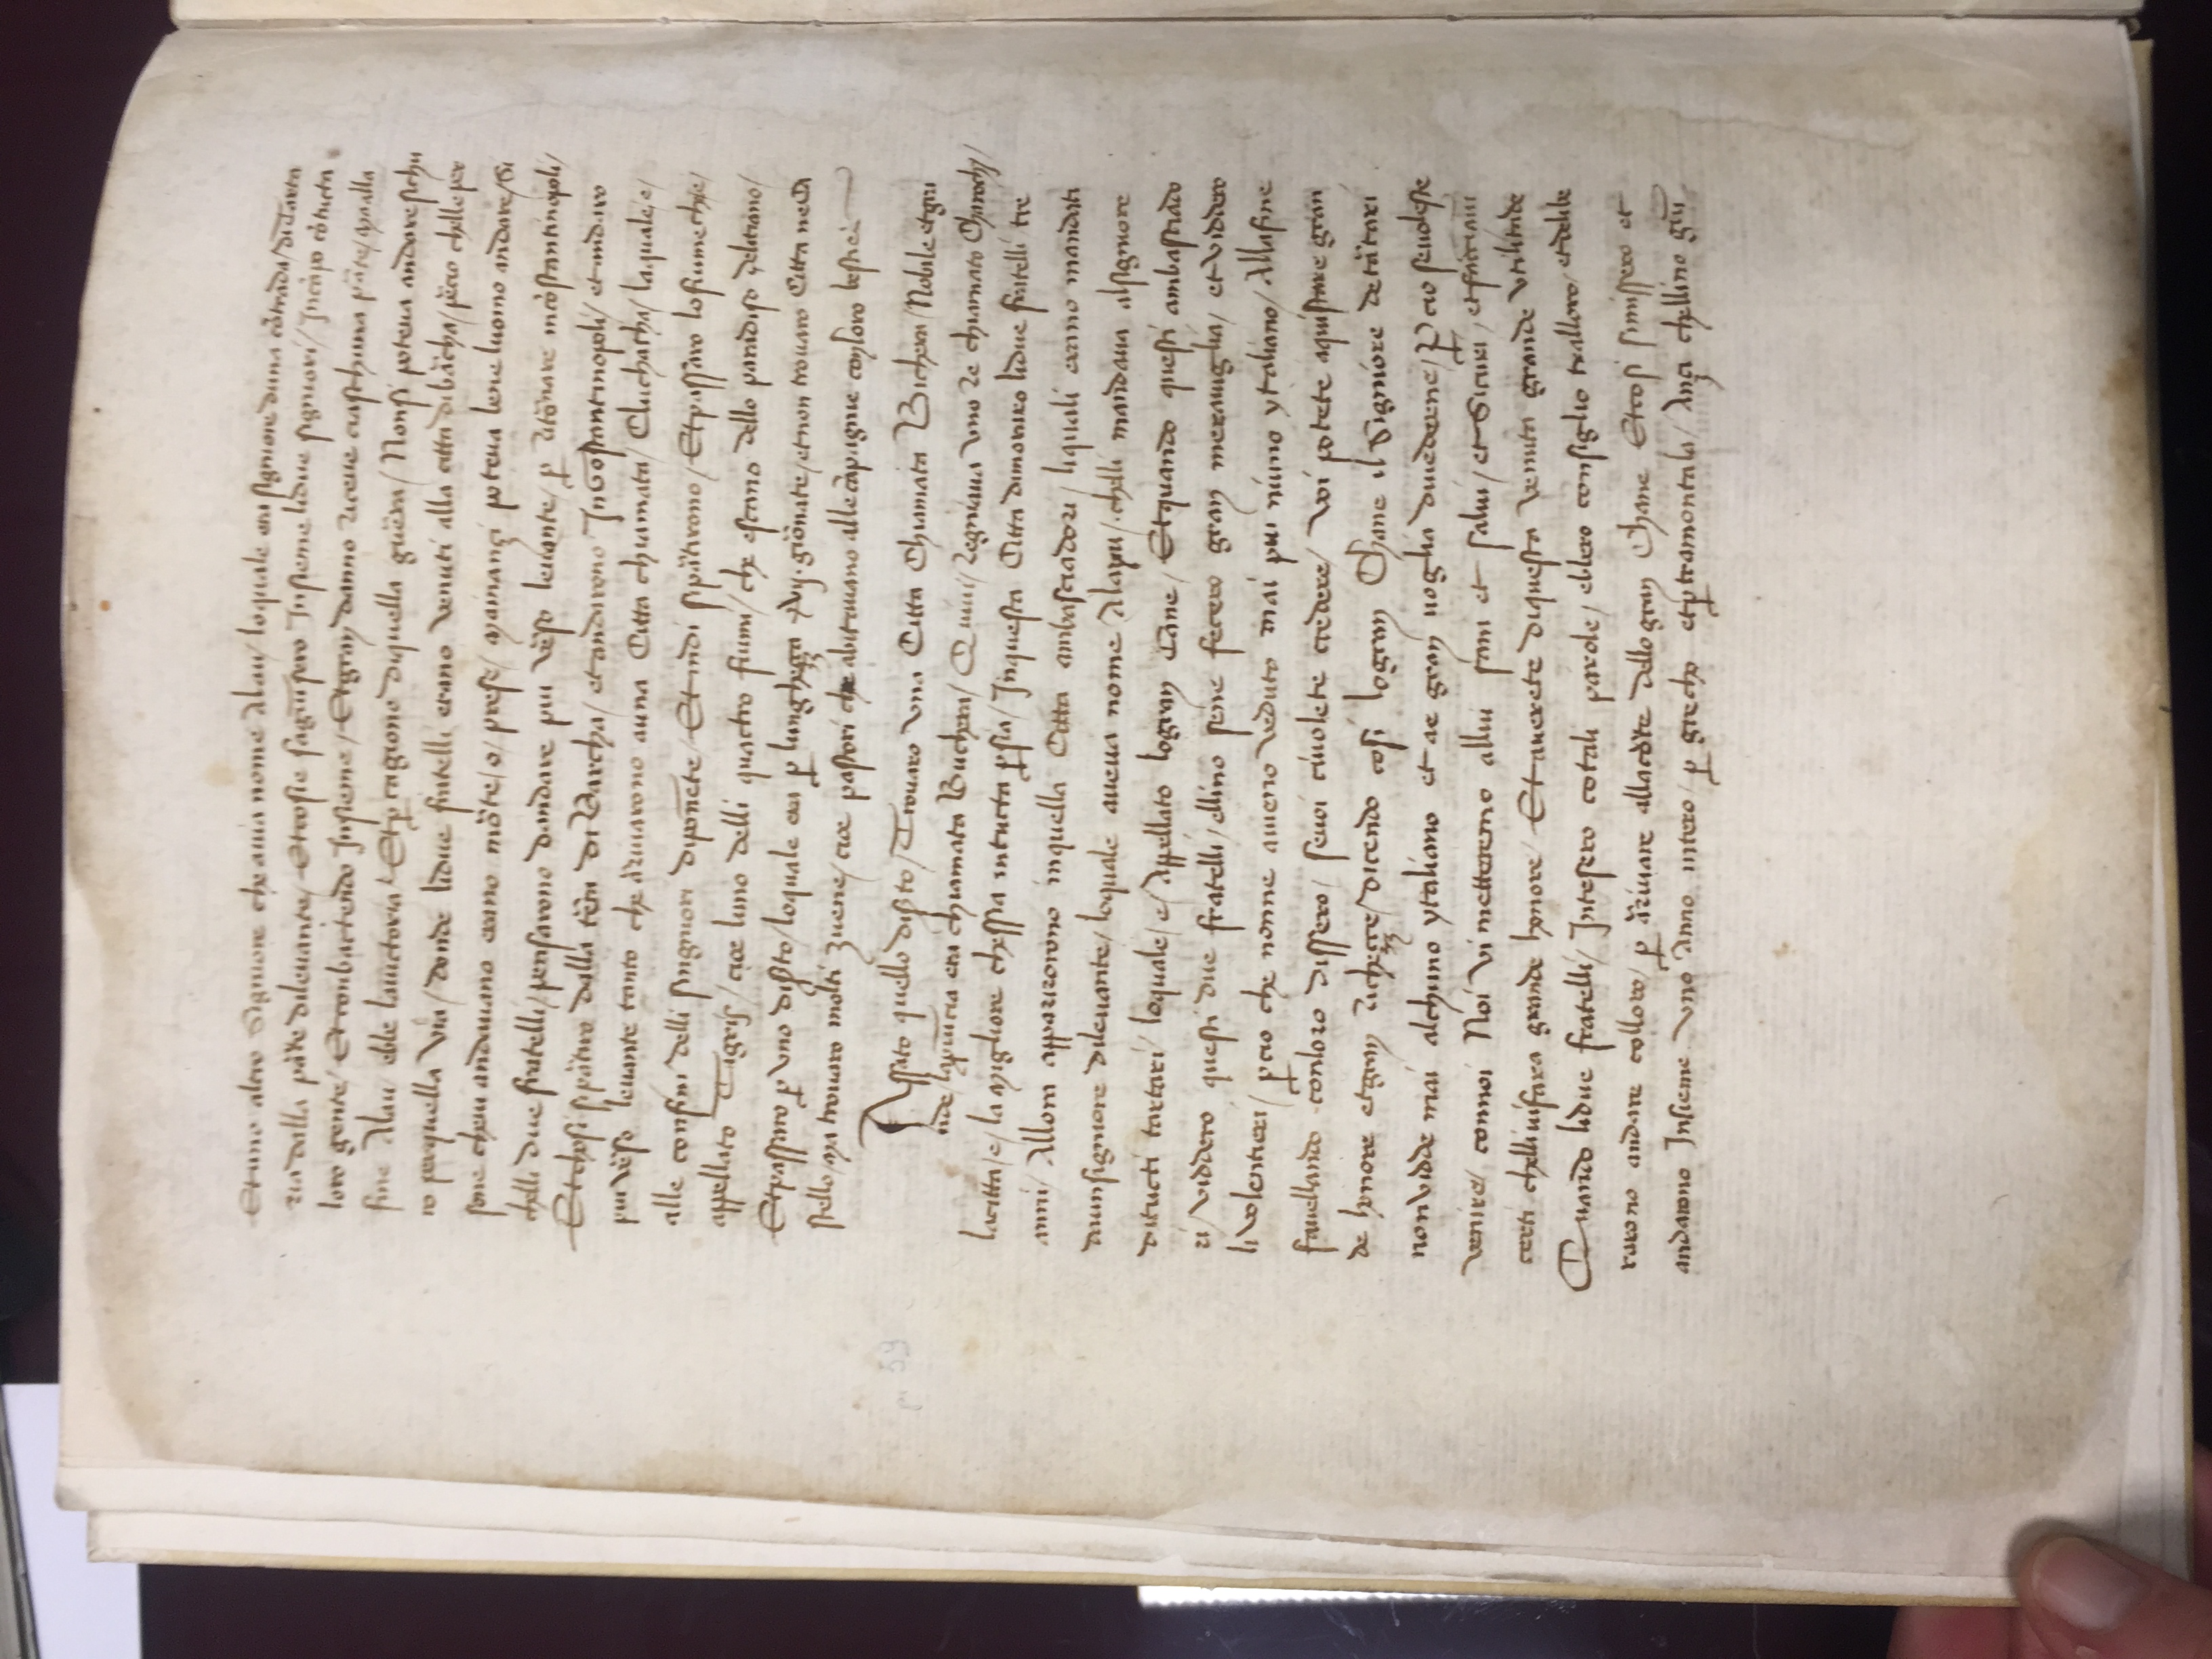 Et uno altro Signiore che avia nome Alau / loquale era signiore duna cōtrada / di Tarta
ria dalla par̄te dilevante / Et cosie sagiūsero Insieme lidue signiori / Incāpo cō tucta
loro gente / Et conbactendo Insieme / Et gran danno riceve ciaschuna par̄te / ma alla
fine Alau ebbe lavictoria / Et ꝑ cagione diquella guer̄ra / Nonsi poteva andare sichu
ro perquella via / donde lidue fratelli erano venuti alla citta dibar̄cha / per̄cio chelle per
sone chevi andavano erano mor̄te / o / prese / ma inançi poteva bene luomo andare / Si
chelli due fratelli / pensarono dandare piu ver̄so levante / ꝑ ritor̄nare incōstantinopoli /
Et chosi sipar̄tiro dalla ter̄ra di Barcha / et andarono In Gostantinopoli / et andaro
piu ver̄so levante tanto che ar̄rivarono auna Citta chiamata / Cluchacha / laquale / e /
alle confini delli singniori diponēte / Et indi sipar̄tirono / Et passaro lo fiume che / e /
appellato Tigris / cioe luno delli quactro fiumi / che escano dello paradiso delitiano /
Et passaro ꝑ uno diꝭto / loquale era ꝑ lungheçça xvij. gior̄nate / et non trovaro Citta ne Ca
stello / ma trovaro molti zuene / cioe pastori che abitavano alle cāpagnie con loro bestie
Assato quello diꝭto / Trovaro una Citta Chiamata Bichera / Nobile et gra
nde / la ꝓvīcia era chiamata Buchera / Quivi / regniava uno re chiamato Charoch /
lacitta / e / la migliore chessia in tucta ꝑsia / Inquesta Citta dimoraro lidue fratelli tre
anni / Allora apparirorono inquella Citta ambasciadori / liquali erano mandati
daunsigniore dilevante / loquale aveva nome Alaau / chelli mandava alsigniore
ditucti tartari / loquale / e / Appellato logran Cane / Et quando questi ambasciado
ri / viddero questi due fratelli / ellino sene fecero gran meraviglia / et viddero
li volentieri / ꝑcio che nonne avieno veduto mai piu niuno ytaliano / Alla fine
favellando conloro dissero / sevoi civolete credere / voi potete aquistare gran
de honore et gran richeççe / dicendo cosi logran Chane il Signiore de tar̄tari
nonvidde mai alchuno ytaliano et ae gran voglia divederne / ꝑcio sevoleste
venire / connoi Noi vi metteremo allui sani et salvi / et Sicuri / et facciāvi
certi chellivifara grande honore / Et averete diquesta venuta grande utilitade
Quando lidue fratelli / Intesero cotali parole / ebbero consiglio tralloro / et delibe
rarono andare colloro / ꝑ ar̄rivare allacor̄te dello gran Chane Et cosi simissero et
andarono Insieme uno Anno intero / ꝑ grecho et ꝑ tramontala / Ançi chellino giū